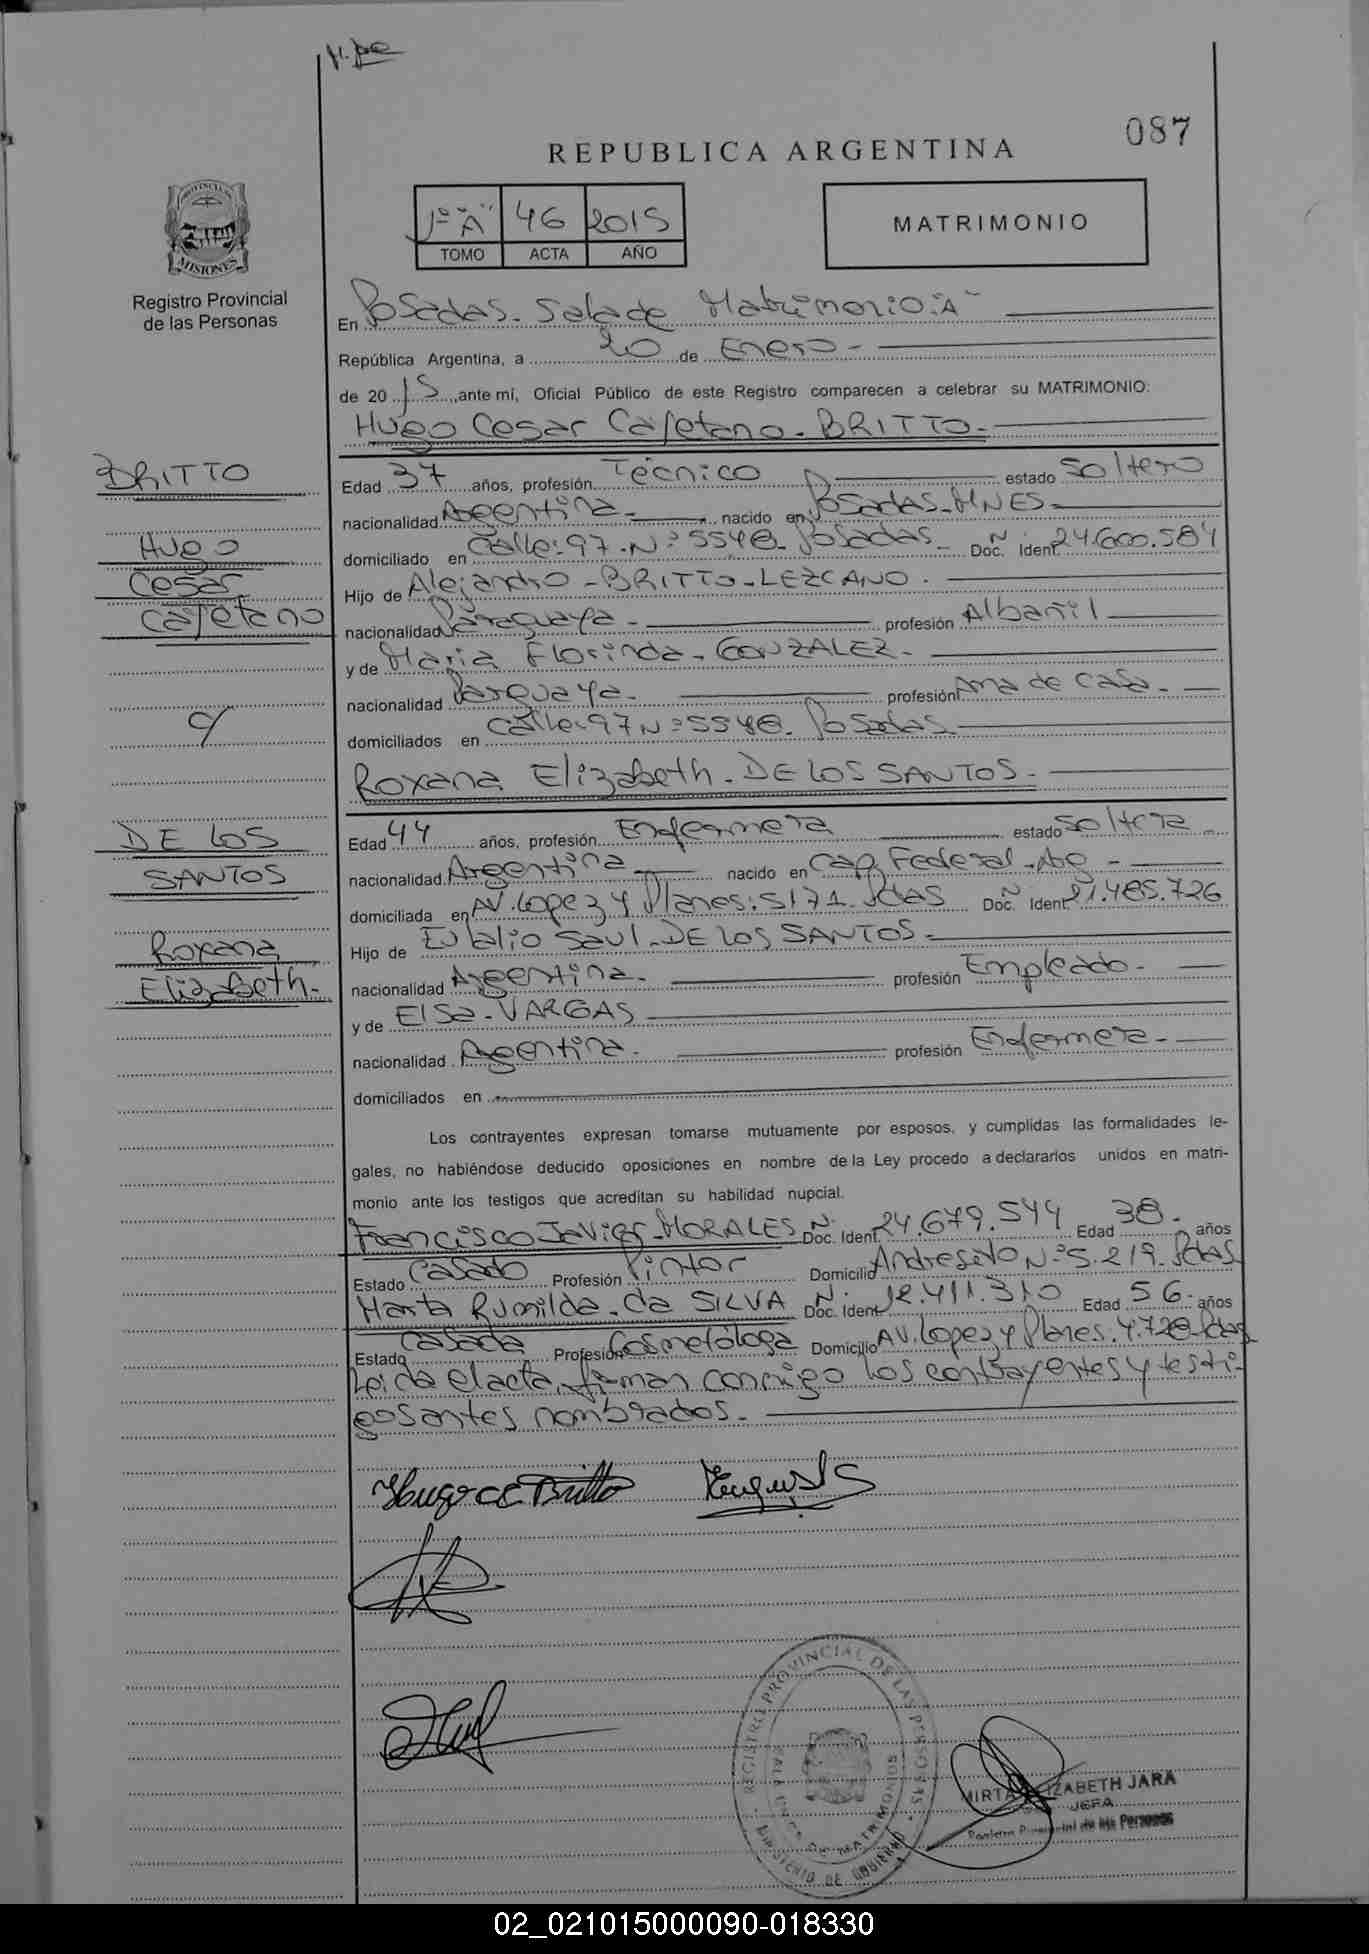 087
REPUBLICA ARGENTINA
1º "A" 46 2015
TOMO ACTA AÑO
MATRIMONIO
PROVINCIA DE MISIONES
Registro Provincial
de las Personas
En Posadas. Sala de Matrimonio "A"
República Argentina, a 20 de Enero -
de 2015, ante mí, Oficial Público de este Registro comparecen a celebrar su MATRIMONIO:
Hugo Cesar Cayetano. BRITTO.
BRITTO
Hugo
Cesar
Cayetano
c/
DE LOS
SANTOS
Roxana
Elizabeth.
Edad 37 años, profesión Técnico estado Soltero
nacionalidad Argentina. nacido en Posadas. MNES.
domiciliado en Calle: 97. Nº 5548. Posadas. Doc. Ident. 24.600.584
Hijo de Alejandro - BRITTO - LEZCANO.
nacionalidad Paraguaya - profesión Albañil
y de Maria Florinda. GONZALEZ.
nacionalidad Parguaya. profesión Ama de casa.
domiciliados en Calle: 97 Nº 5548. Posadas
Roxana Elizabeth. DE LOS SANTOS.
Edad 44 años, profesión Enfermera estado Soltera
nacionalidad Argentina nacido en Cap. Federal.
domiciliada en AV. Lopez y Planes: 5171. Pdas Doc. Ident. 21.485.726
Hijo de Eulalio Saul. DE LOS SANTOS.
nacionalidad Argentina. profesión Empleado.
y de Elsa. VARGAS
nacionalidad Argentina. profesión Enfermera.
domiciliados en
Los contrayentes expresan tomarse mutuamente por esposos, y cumplidas las formalidades le-
gales, no habiéndose deducido oposiciones en nombre de la Ley procedo a declararlos unidos en matri-
monio ante los testigos que acreditan su habilidad nupcial.
Francisco Javier. MORALES Nº Doc. Ident. 24.679.544 Edad 38. años
Estado Casado Profesión Pintor Domicilio Andresito Nº 5.219. Pdas
Marta Rumilda. da SILVA Nº Doc. Ident. 12.411.310 Edad 56. años
Estado Casada Profesión Cosmetóloga Domicilio AV. Lopez y Planes. 4.728 Pdas
Leida el acta, firman conmigo los contrayentes y testi-
gos antes nombrados.
Hugo C Britto
REGISTRO PROVINCIAL DE LAS PERSONAS
MINISTERIO DE GOBIERNO
MIRTA ELIZABETH JARA
JEFA
Registro Provincial de las Personas
02_021015000090-018330